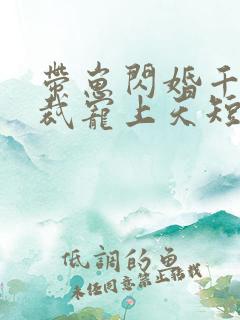 帶崽閃婚千
裁寵上天短
低調的魚
未经同意禁止轉載